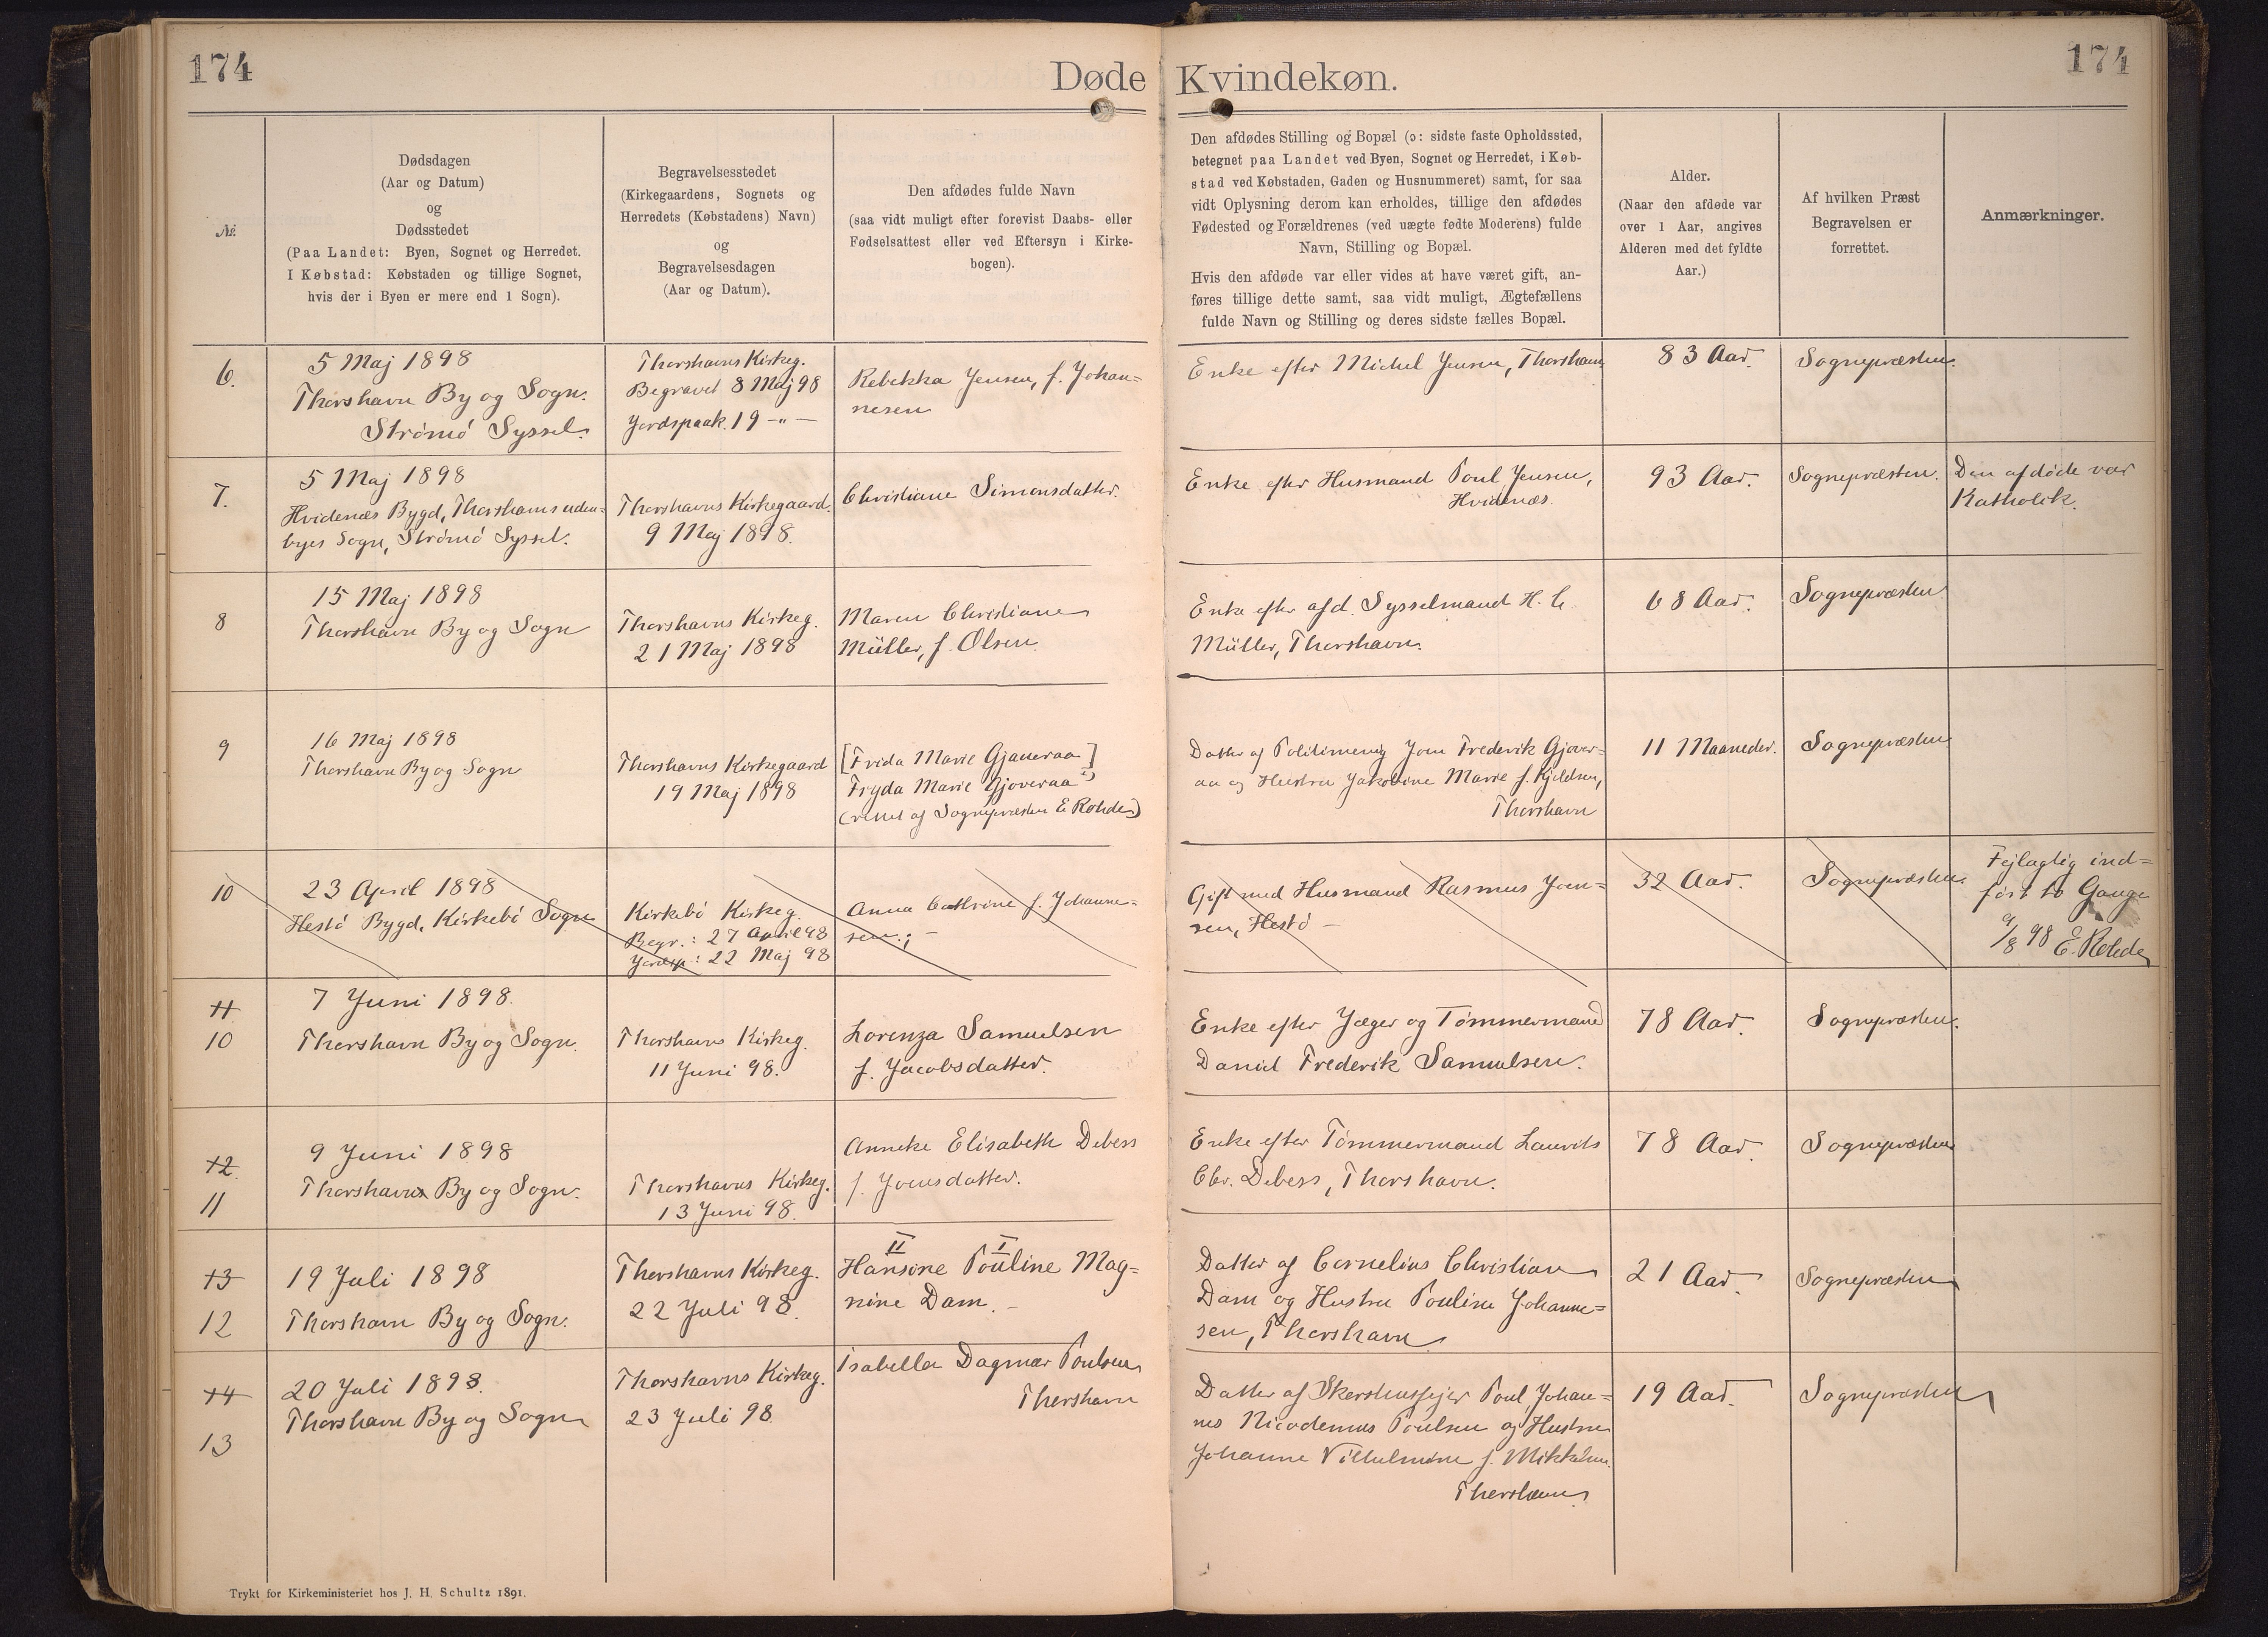 174
Døde Kvindekøn.
174
№
Dødsdagen
(Aar og Datum)
og
Dødsstedet
(Paa Landet: Byen, Sognet og Herredet.
I Købstad: Købstaden og tillige Sognet,
hvis der i Byen er mere end 1 Sogn).
Begravelsesstedet
(Kirkegaardens, Sognets og
Herredets (Købstadens) Navn)
og
Begravelsesdagen
(Aar og Datum).
Den afdødes fulde Navn
(saa vidt muligt efter forevist Daabs- eller
Fødselsattest eller ved Eftersyn i Kirke-
bogen).
Den afdødes Stilling og Bopæl (ɔ: sidste faste Opholdssted,
betegnet paa Landet ved Byen, Sognet og Herredet, i Køb-
stad ved Købstaden, Gaden og Husnummeret) samt, for saa
vidt Oplysning derom kan erholdes, tillige den afdødes
Fødested og Forældrenes (ved uægte fødte Moderens) fulde
Navn, Stilling og Bopæl.
Hvis den afdøde var eller vides at have været gift, an-
føres tillige dette samt, saa vidt muligt, Ægtefællens
fulde Navn og Stilling og deres sidste fælles Bopæl.
Alder.
(Naar den afdøde var
over 1 Aar, angives
Alderen med det fyldte
Aar.)
Af hvilken Præst
Begravelsen er
forrettet.
Anmærkninger.
6.
5 Maj 1898
Thorshavn By og Sogn.
Strömö Syssel.
Thorshavns Kirkeg.
Begravet 8 Maj 98
Jordspaak. 19 -"-
Rebekka Jensen, f. Johan=
nesen
Enke efter Michel Jensen, Thorshavn
83 Aar.
Sognepræsten.
7.
5 Maj 1898
Hvidenæs Bygd, Thorshavns uden=
byes Sogn, Strömö Syssel.
Thorshavns Kirkegaard.
9 Maj 1898.
Christiane Simonsdatter.
Enke efter Husmand Poul Jensen,
Hvidenæs.
93 Aar.
Sognepræsten.
Den afdöde var
Katholik.
8
15 Maj 1898
Thorshavn By og Sogn
Thorshavns Kirkeg.
21 Maj 1898
Maren Christiane
Müller, f. Olsen.
Enke efter afd. Sysselmand H. C.
Müller, Thorshavn.
68 Aar.
Sognepræsten.
9
16 Maj 1898
Thorshavn By og Sogn
Thorshavns Kirkegaard
19 Maj 1898
[Frida Marie Gjaneraa]
Fryda Marie Gjoveraa
(rettet af Sognepræsten E Rohde)
Datter af Politimenig Joen Frederik Gjover=
aa og Hustru Jakobine Marie f. Kjeldsen,
Thorshavn
11 Maaneder.
Sognepræsten.
10
23 April 1898
Hestö Bygd, Kirkebö Sogn
Kirkebö Kirkeg.
Begr.: 27 April 98
Jordsp: 22 Maj 98
Anna Cathrine f. Johanne=
sen.; -
Gift med Husmand Rasmus Joen=
sen, Hestö -
32 Aar.
Sognepræsten.
Fejlagtig ind=
fört to Gange
9/8 98 E. Rohde
11
10
7 Juni 1898.
Thorshavn By og Sogn.
Thorshavns Kirkeg.
11 Juni 98.
Lorenza Samuelsen
f. Jacobsdatter.
Enke efter Jæger og Tömmermand
Daniel Frederik Samuelsen.
78 Aar.
Sognepræsten.
12.
11
9 Juni 1898
Thorshavns By og Sogn.
Thorshavns Kirkeg.
13 Juni 98.
Anneke Elisabeth Debess
f. Joensdatter.
Enke efter Tömmermand Laurits
Chr. Debess, Thorshavn.
78 Aar.
Sognepræsten
13
12
19 Juli 1898
Thorshavn By og Sogn.
Thorshavns Kirkeg.
22 Juli 98.
II I
Hansine Pouline Mag=
nine Dam. -
Datter af Cornelius Christian
Dam og Hustru Pouline Johanne=
sen, Thorshavn
21 Aar
Sognepræsten
14
13
20 Juli 1898.
Thorshavn By og Sogn
Thorshavns Kirkeg.
23 Juli 98
Isabella Dagmar Poulsen
Thorshavn
Datter af Poul Johan=
nes Nicodemus Poulsen og Hustru
Johanne Vilhelmine f. Mikkelsen.
Thorshavn
19 Aar.
Sognepræsten
Trykt for Kirkeministeriet hos J. H. Schultz 1891.